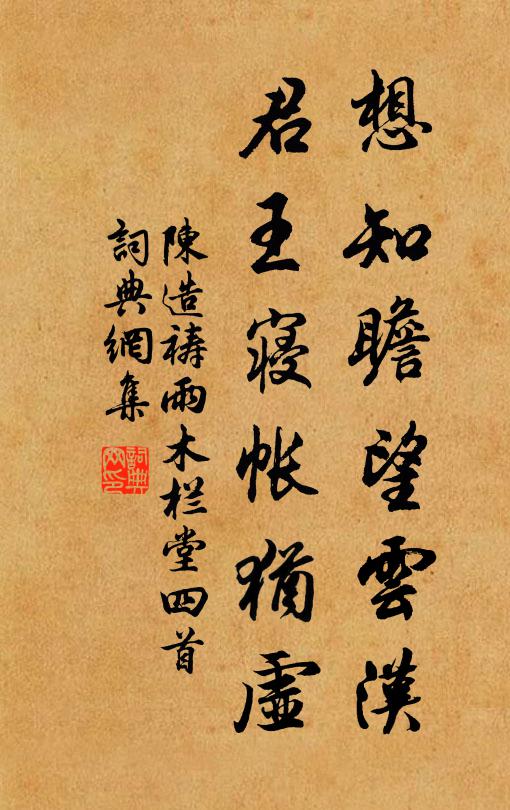 想知瞻望雲漢
君王寝帳猶虛
陳造禱雨木栏堂四首
詞典網集
詞典網印